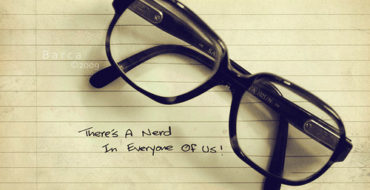 Barca
©2009
There's A Nerd
In Everyone Of Us!